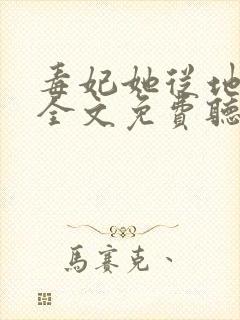 毒妃她從地
全文免費聽
馬賽克、